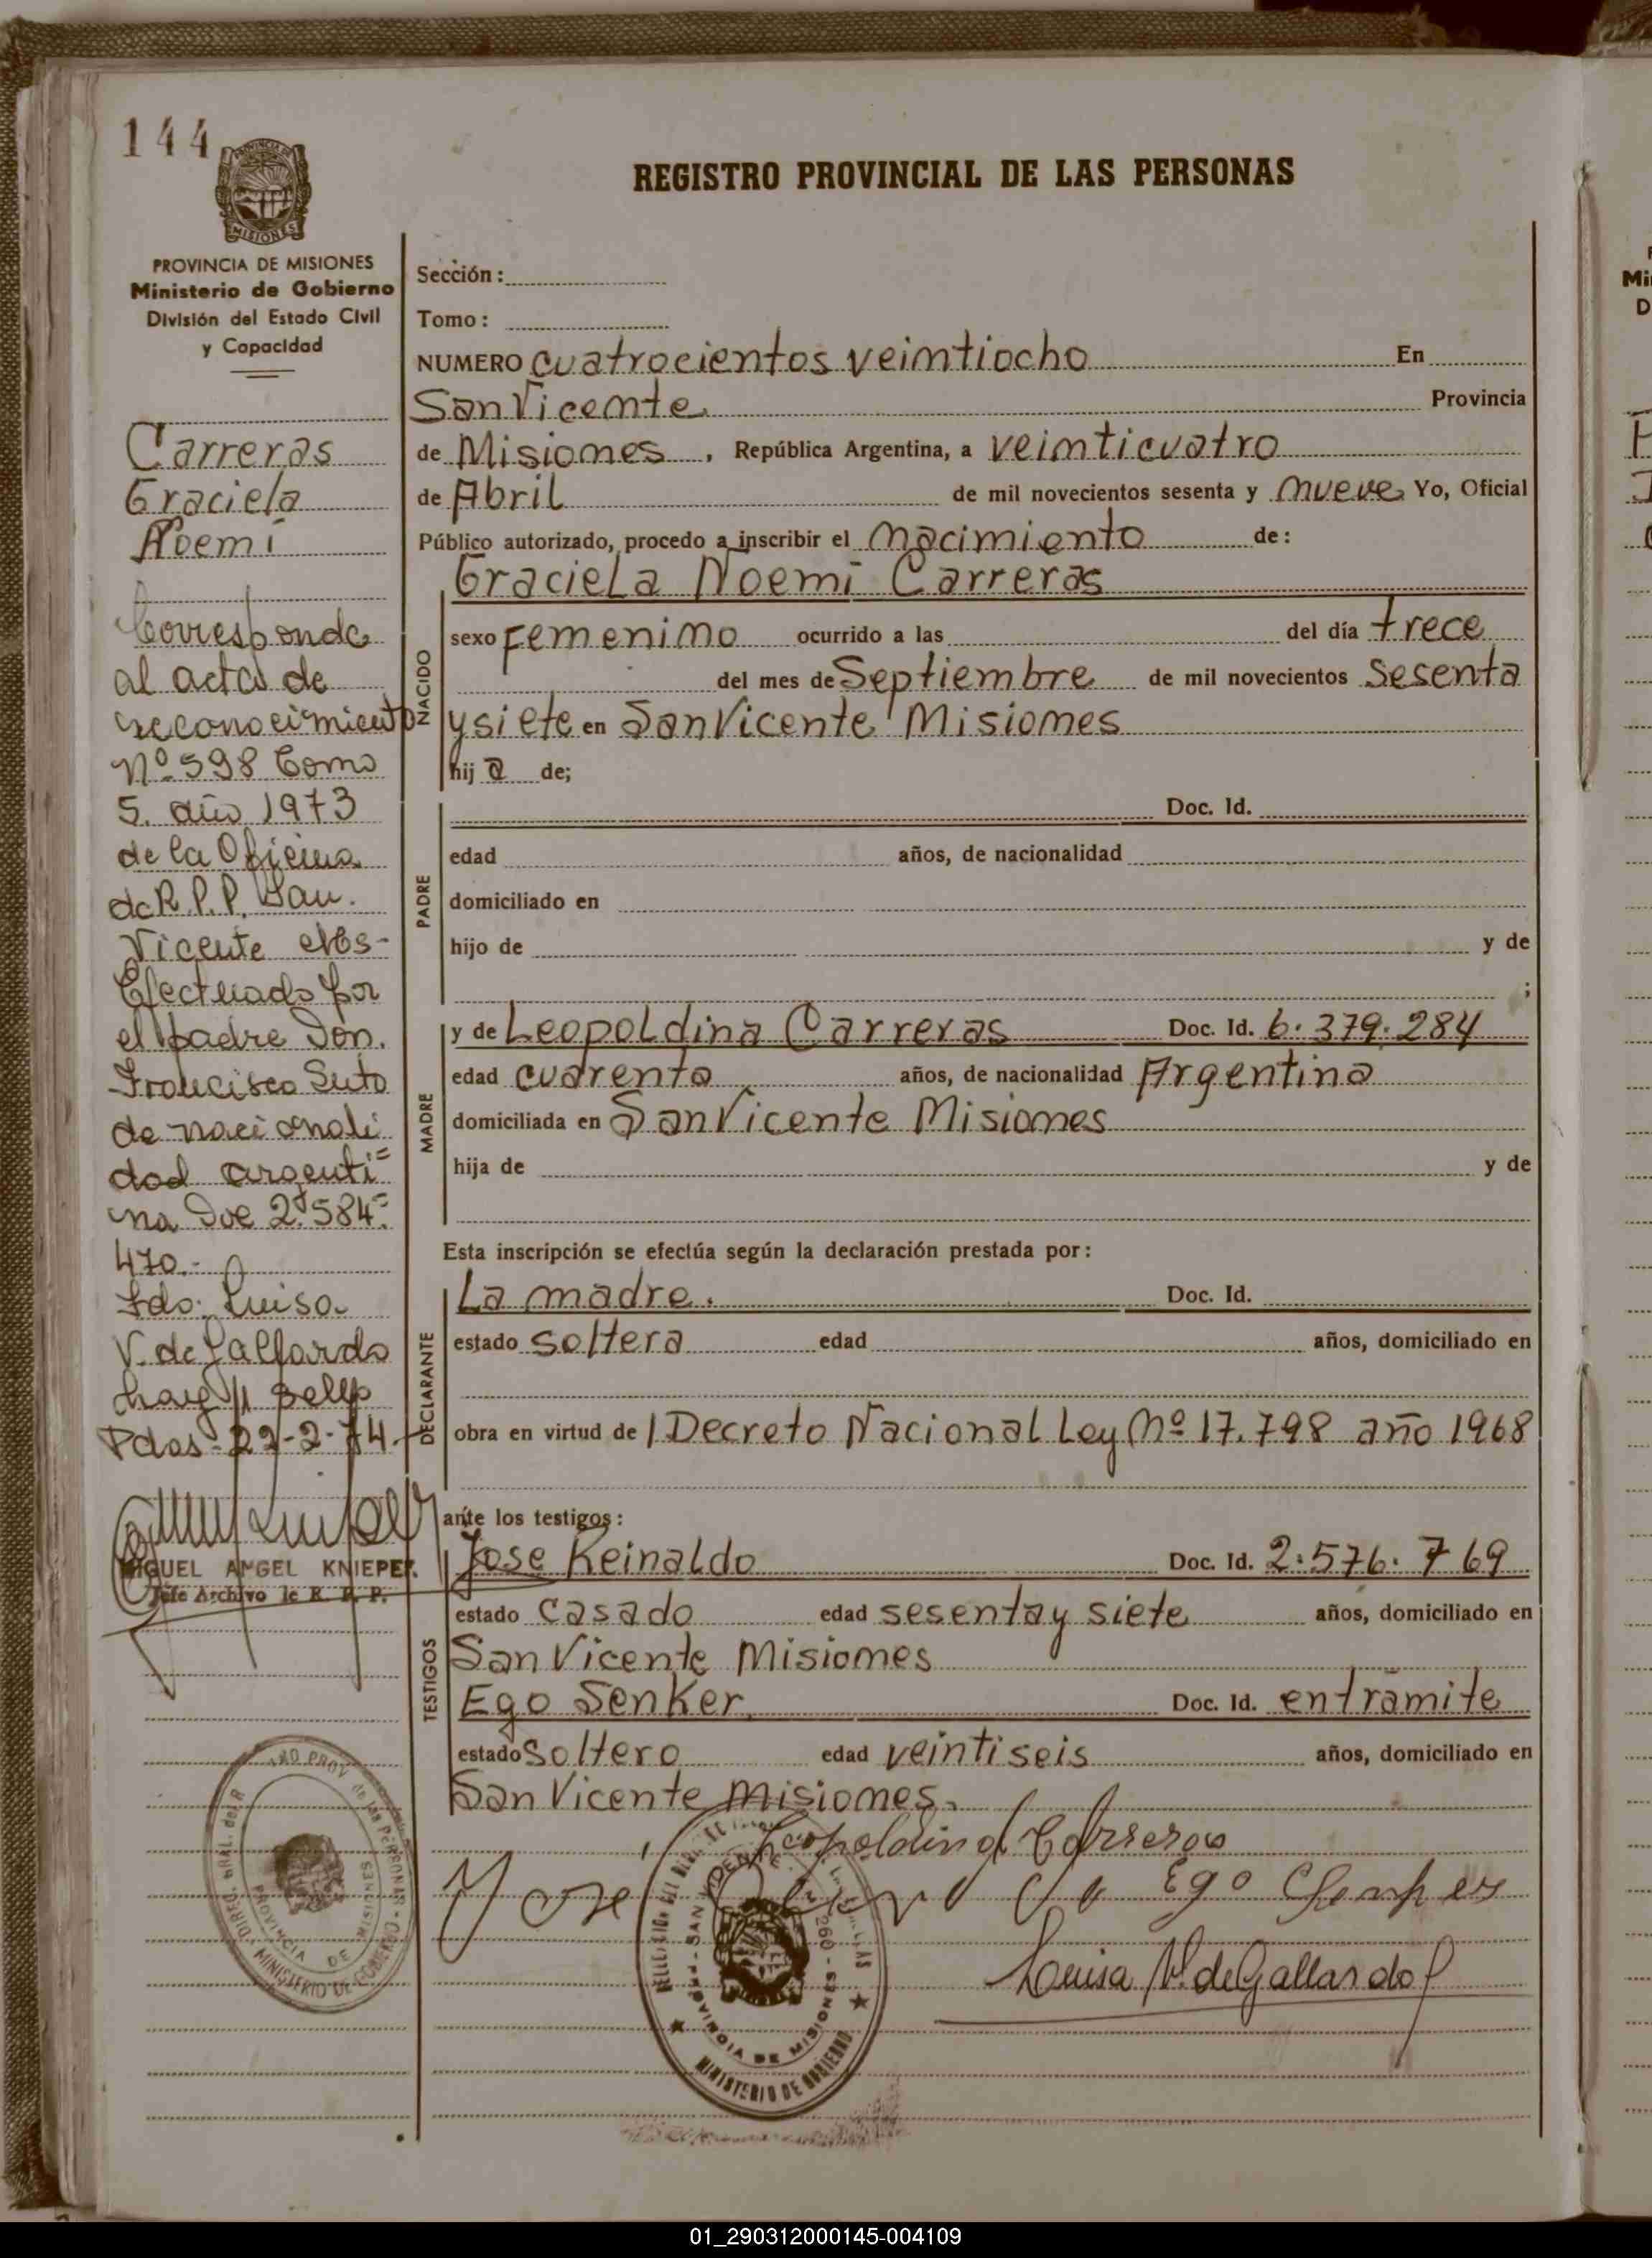 144
PROVINCIA DE
MISIONES
REGISTRO PROVINCIAL DE LAS PERSONAS
PROVINCIA DE MISIONES
Ministerio de Gobierno
División del Estado Civil
y Capacidad
Carreras
Graciela
Noemi
Corresponde
al acta de
reconocimiento
Nº 598 Tomo
5. año 1973
de la Oficina
de R.P.P. San.
Vicente Mos-
Efectuado por
el padre Don.
Francisco Suto
de nacionali
dad argenti=
na Doc 2.584=
470.-
Fdo: Luisa
V. de Gallardo
hay // sello
Pdas - 22-2-74.-
MIGUEL ANGEL KNIEPER
Jefe Archivo de R. P. P.
Sección:
Tomo:
NUMERO cuatrocientos veimtiocho En
San Vicemte. Provincia
de Misiomes, República Argentina, a veimticuatro
de Abril de mil novecientos sesenta y mueve Yo, Oficial
Público autorizado, procedo a inscribir el macimiento de:
Graciela Noemi Carreras
NACIDO
sexo Femenimo ocurrido a las del día trece
del mes de Septiembre de mil novecientos sesenta
y siete en San Vicente Misiomes
hij a de;
PADRE
Doc. Id.
edad años, de nacionalidad
domiciliado en
hijo de y de
;
MADRE
y de Leopoldina Carreras Doc. Id. 6.379.284
edad cuarenta años, de nacionalidad Argentina
domiciliada en San Vicente Misiomes
hija de y de
Esta inscripción se efectúa según la declaración prestada por:
DECLARANTE
La madre. Doc. Id.
estado soltera edad años, domiciliado en
obra en virtud de l Decreto Nacional Ley Nº 17.798 año 1968
ante los testigos:
TESTIGOS
Jose Reinaldo Doc. Id. 2.576.769
estado casado edad sesenta y siete años, domiciliado en
San Vicente Misiomes
Ego Senker Doc. Id. en tramite
estado soltero edad veintiseis años, domiciliado en
San Vicente Misiomes.
Leopoldina Carreras
Jose
Ego
Luisa V. de Gallardo
DIREC. GRAL. del R
PROV. de las PERSONAS
PROVINCIA DE MISIONES
MINISTERIO DE GOBIERNO
SAN VICENTE
PROVINCIA DE MISIONES
MINISTERIO DE GOBIERNO
Mi
D
01_290312000145-004109